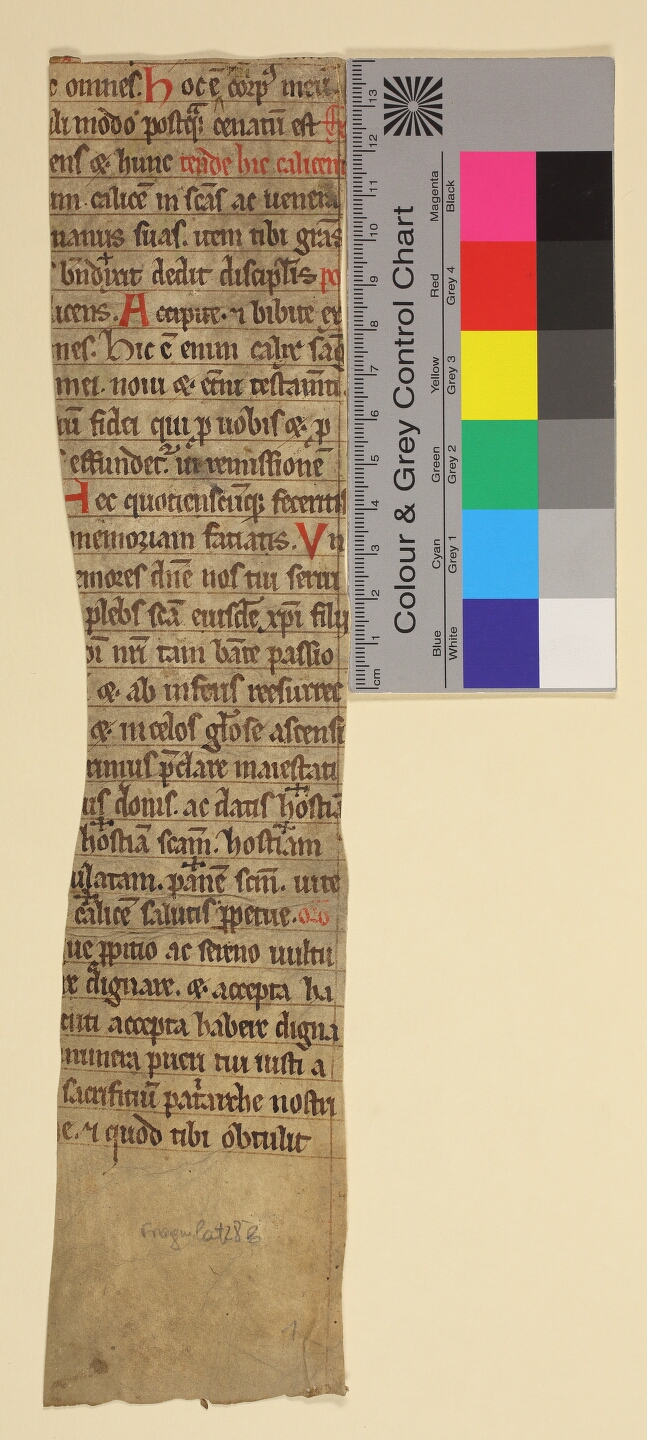 omnes. Hoc ē corpꝰ meū.
modo postꝗ̄ cenatū est
ens & hunc tende hic calicem
calicē in scās ac uenera
manus suas. item tibi grās
bn̄dixit dedit discipl̄is po
icens. Accipite. ⁊ bibite ex
nes. Hic ē enim calix sāg
mei. noui & et̄ni testam̄ti.
fidei qui ꝑ uobis & ꝑ
effundet᷑. in remissionē
Hec quotienscūqꝫ feceritis
memoriam faciatis. Vn
emores dn̄e nos tui serui
plebs scā eiusdē xp̄i filii
nr̄i tam bāte passio
& ab inferis resurrec
& in celos gl̄ose ascensi
rimus p̄clare maiestati
is donis. ac datis hostiā
hostiā scam̄. hostiam
ulatam. panē scm̄. uite
calicē salutis ꝑpetue.
ue ꝓpitio ac sereno uultu
re dignare. & accepta ha
cuti accepta habere digna
munera pueri tui iusti a
sacrificiū patriarche nostri
e. ⁊ quod tibi obtulit
Fragm. lat 28
1
Colour & Grey Control Chart
Blue Cyan Green Yellow Red Magenta
White Grey 1 Grey 2 Grey 3 Grey 4 Black
cm 1 2 3 4 5 6 7 8 9 10 11 12 13